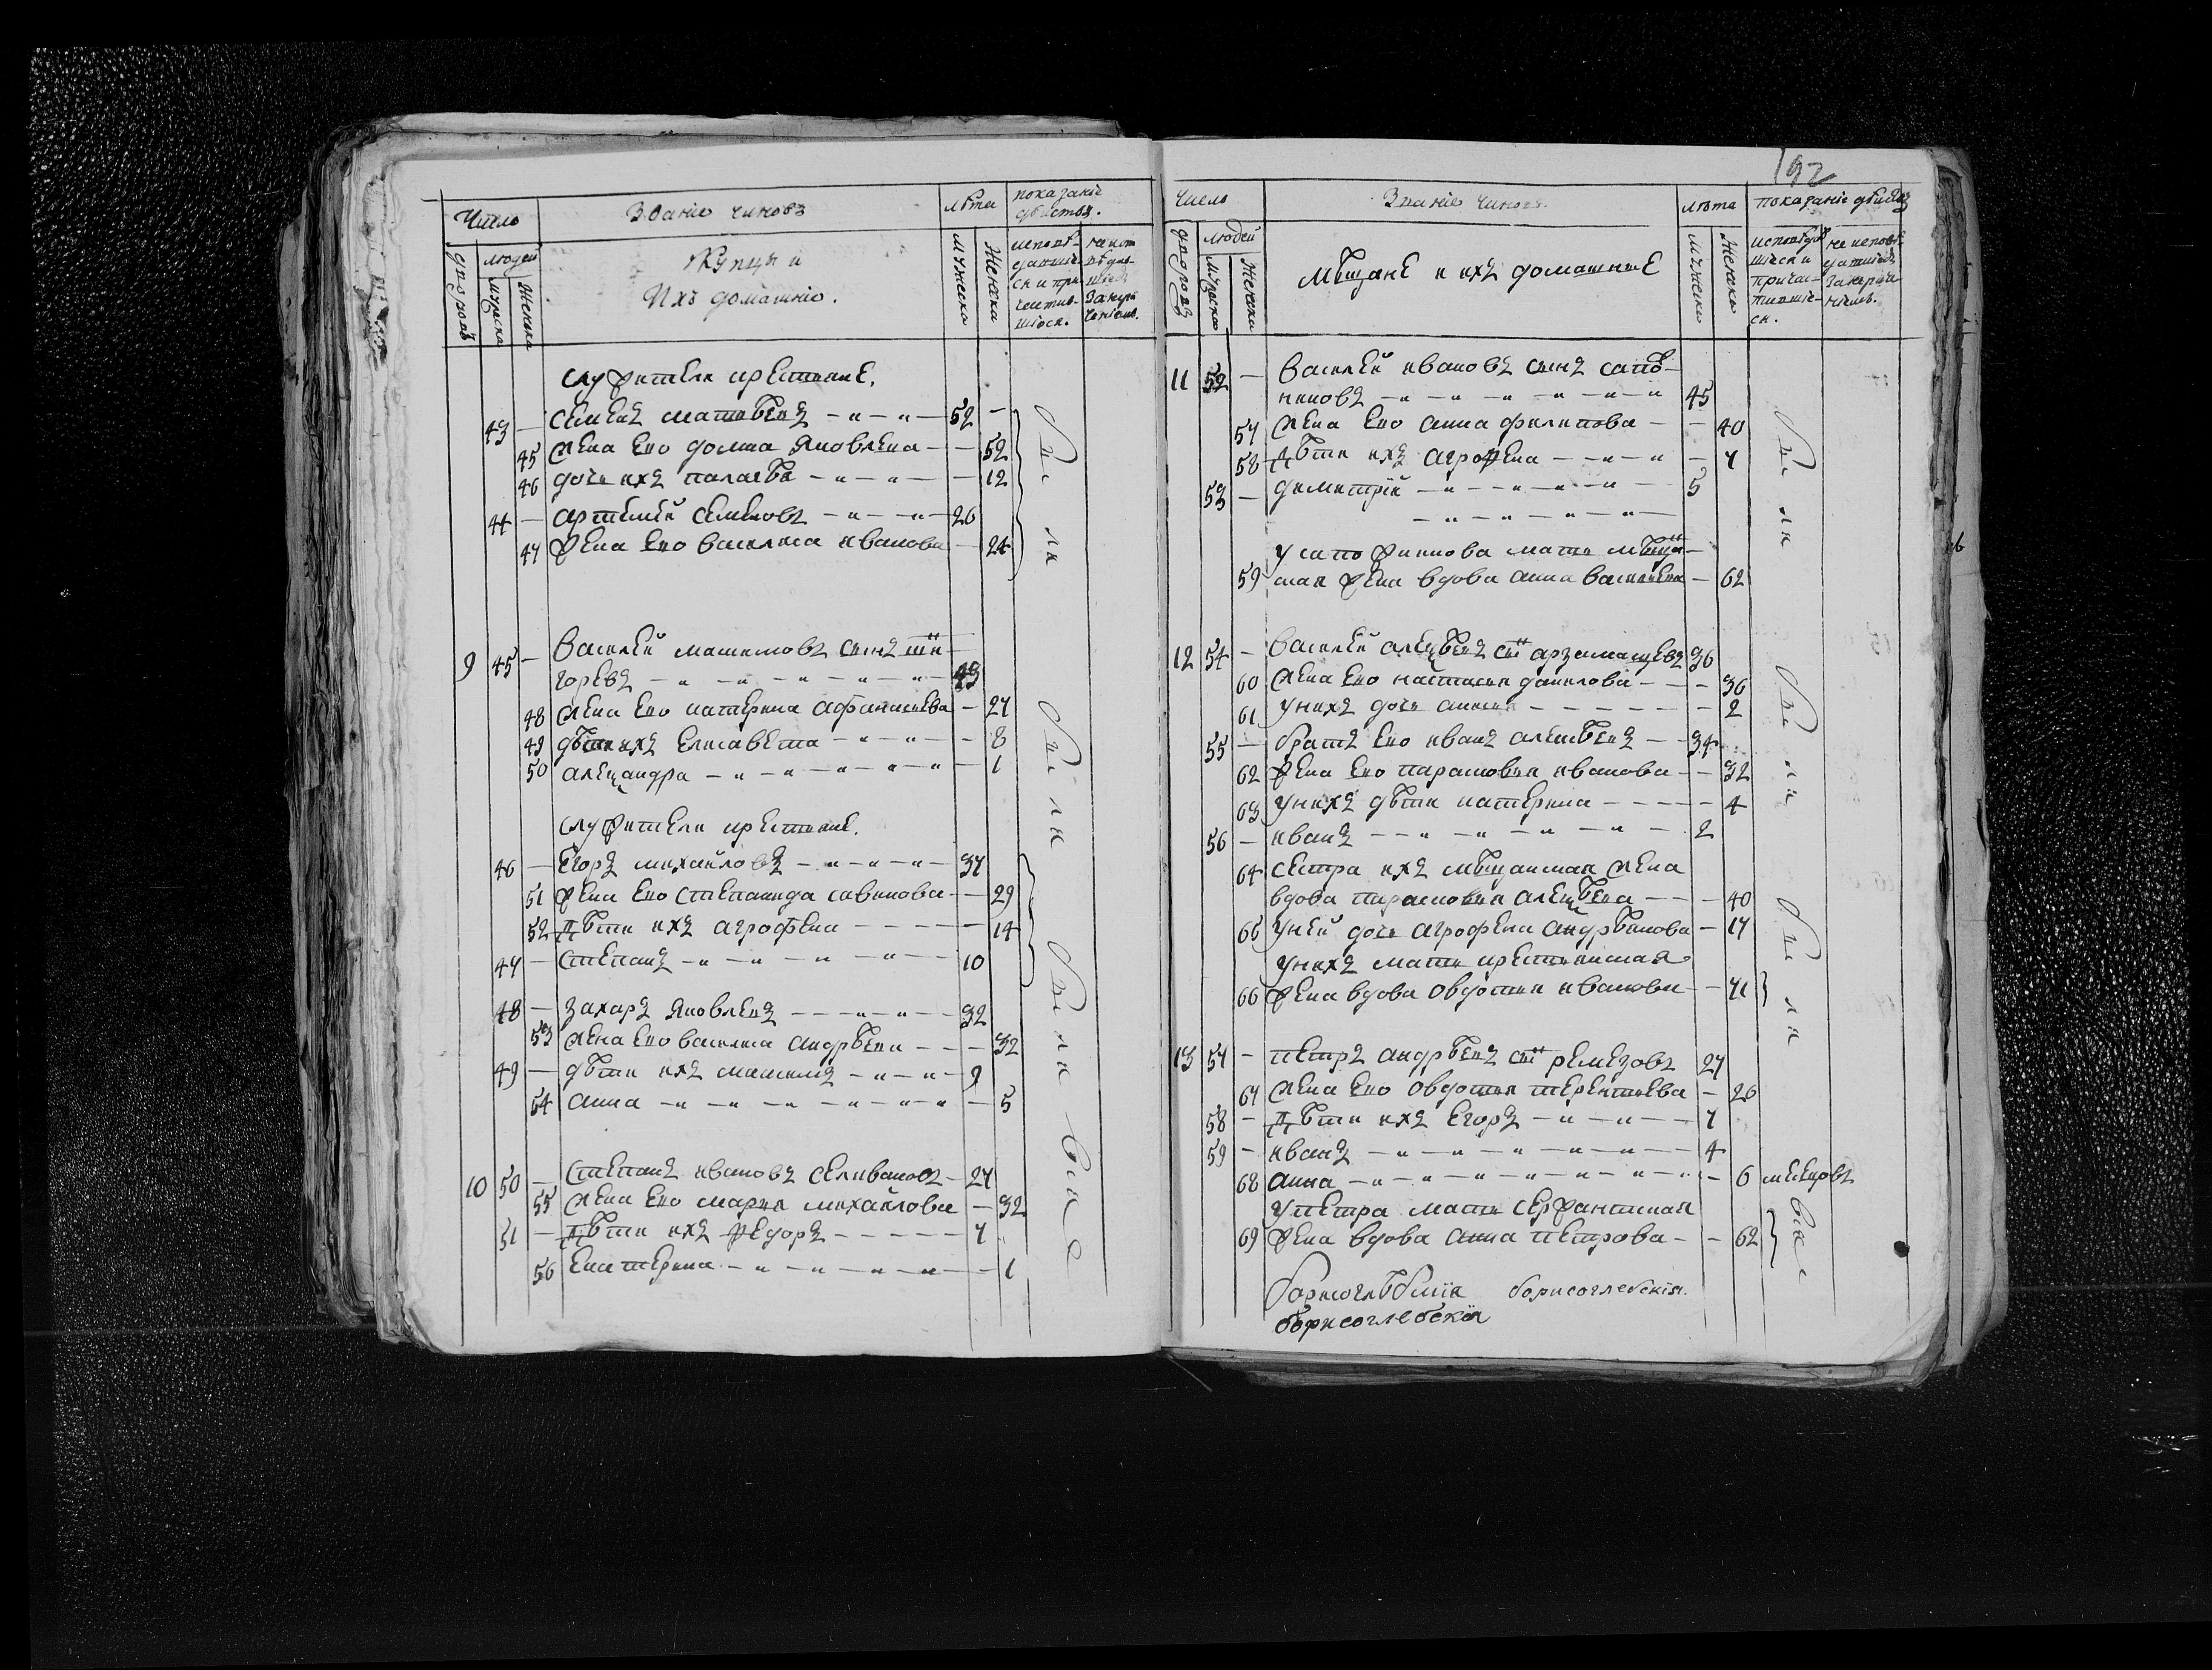 Число
Званіе чиновъ
лѣта
показаніе дѣйства.
дворовъ
людей
мужеска
женска
Купцы и
Ихъ домашніе.
мужеска
женска
служители крестьяне.
43 — Семенъ Матвѣевъ 52 —
45 жена ево Домна Яковлева — 52
46 дочь ихъ Палагѣя — 12
44 — Артемей Семеновъ 26
47 жена ево Василиса Иванова — 24
были
9 45 — Василей Максимовъ сынъ
горевъ 43
48 жена ево Катерина Афанасьева — 27
49 дѣти ихъ Елисавета — 8
50 Александра — 1
служители крестьяне.
46 — Егоръ Михайловъ 37
51 жена ево Степанида Савинова — 29
52 дѣти ихъ Агрофена — 14
47 — Степанъ 10
48 — Захаръ Яковлевъ 32
53 жена ево Василиса Андрѣева — 32
49 — дѣти ихъ Максимъ 9
54 Анна — 5
10 50 — Степанъ Ивановъ Селивановъ 27
55 жена ево Марья Михайлова — 32
51 — дѣти ихъ Федоръ 7
56 Екатерина — 1
были
были все
192
Число
Званіе чиновъ.
лѣта
показаніе дѣйства
дворовъ
людей
мужеска
женска
Мѣщане и ихъ домашные
мужеска
женска
11 52 — Василей Ивановъ сынъ Сапо-
жниковъ 45
57 жена ево Анна Филипова — 40
58 дѣти ихъ Агрофена — 7
53 — Димитрій 5
у Сапожникова мать мѣщан-
59 ская жена вдова Анна Васильева — 62
были
12 54 — Василей Алексѣевъ сынъ Арзамасцевъ 36
60 жена ево Настасья Данилова — 36
61 у нихъ дочь — 2
55 — братъ ево Иванъ Алексѣевъ 34
62 жена ево Парасковья Иванова — 32
63 у нихъ дѣти Катерина — 4
56 — Иванъ 2
64 сестра ихъ мѣщанская жена
вдова Парасковья Алексѣева — 40
66 у ней дочь Агрофена Андрѣянова — 17
у нихъ мать крестьянская
66 жена вдова Овдотья Иванова — 71
были
были
13 57 — Петръ Андрѣевъ сынъ Ремезовъ 27
67 жена ево Овдотья Терентьева — 26
58 — дѣти ихъ Егоръ 7
59 — Иванъ 4
68 Анна — 6
у Петра мать сержантская
69 жена вдова Анна Петрова — 62
все
борисоглѣбскія борисоглебскія.
борисоглебскія